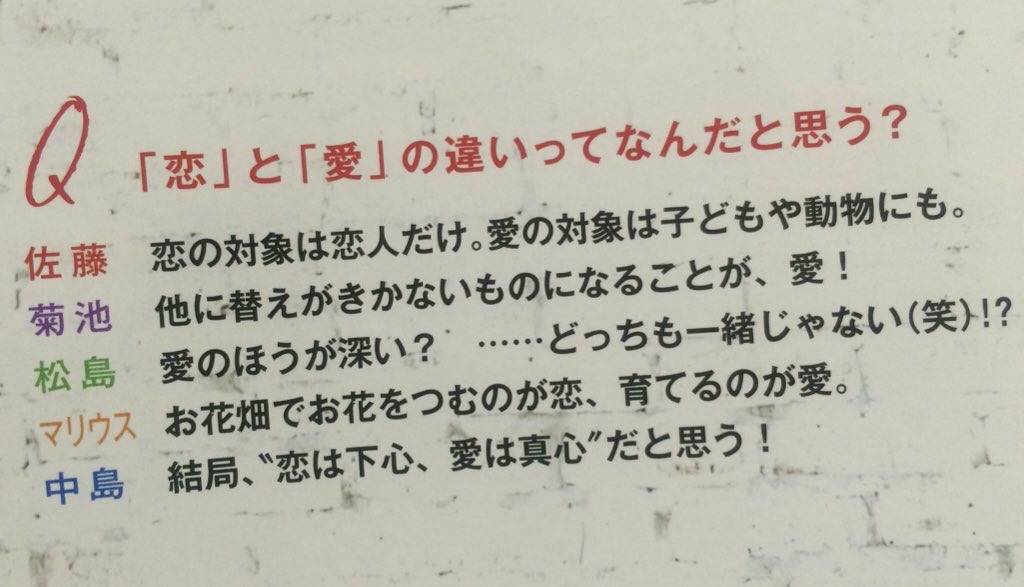 Q 「恋」と「愛」の違いってなんだと思う?
佐藤 恋の対象は恋人だけ。愛の対象は子どもや動物にも。
菊池 他に替えがきかないものになることが、愛!
松島 愛のほうが深い? ……どっちも一緒じゃない(笑)!?
マリウス お花畑でお花をつむのが恋、育てるのが愛。
中島 結局、〝恋は下心、愛は真心〟だと思う!